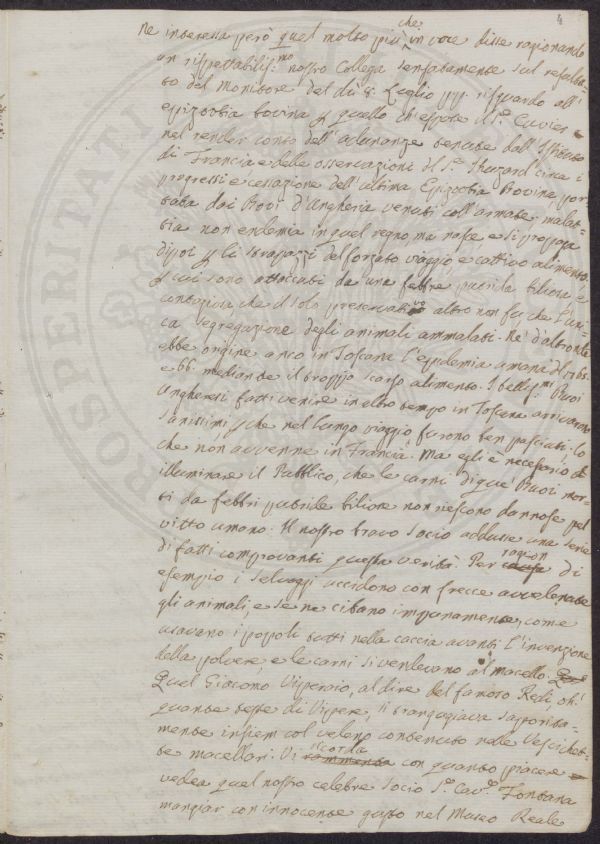 4
Ne interessa però quel molto più che in voce disse ragionando
un rispettabilis.mo nostro Collega sensatamente sul resulta-
to del Monitore del dì 8. Luglio pp. risguardo all'
epizootia bovina p quello ch'espose il S.r Cuvier
nel render conto dell'adunanze tenute dall'Istituto
di Francia e delle osservazioni del S.r Huzard circa i
progressi e cessazione dell'ultima Epizootia Bovina, por-
tata dai Bovi d'Ungheria venuti coll'armate, malat-
tia non endemia in quel regno, ma nasce, e si propaga
dipoi p li strapazzi del forzato viaggio, e cattivo alimento
p cui sono attaccati da una febbre putrida biliosa, e
contagiosa, che il solo preservativo altro non fu che l'uni-
ca segregazione degli animali ammalati. Nè d'altronde
ebbe origine anco in Toscana l'epidemia umana del 1765.
e 66. mediante il troppo scarso alimento. I bellis.mi Bovi
Ungheresi fatti venire in altro tempo in Toscana arrivarono
sanissimi p che nel lungo viaggio furono ben pasciuti. lo
che non avvenne in Francia. Ma egli è necessario di
illuminare il Pubblico, che le carni di que' Bovi mor-
ti da febbri putride biliose non riescono dannose pel
vitto umano. Il nostro bravo socio addusse una serie
di fatti comprovanti questa verità. Per ragion di
esempio i selvaggi uccidono con frecce avvelenate
gli animali, e se ne cibano impunamente, come
usavano i popoli tutti nella caccia avanti l'invenzione
della polvere e le carni si vendevano al macello.
Quel Giacomo Viperaio, al dire del famoso Redi, oh!
quante teste di Vipere, si trangugiava saporita-
mente insiem col veleno contenuto nelle Vescichet-
te macellari. Vi ricorda con quanto piacere
vedea quel nostro celebre socio S.r Cav.e Fontana
mangiar con innocente gusto nel Museo Reale